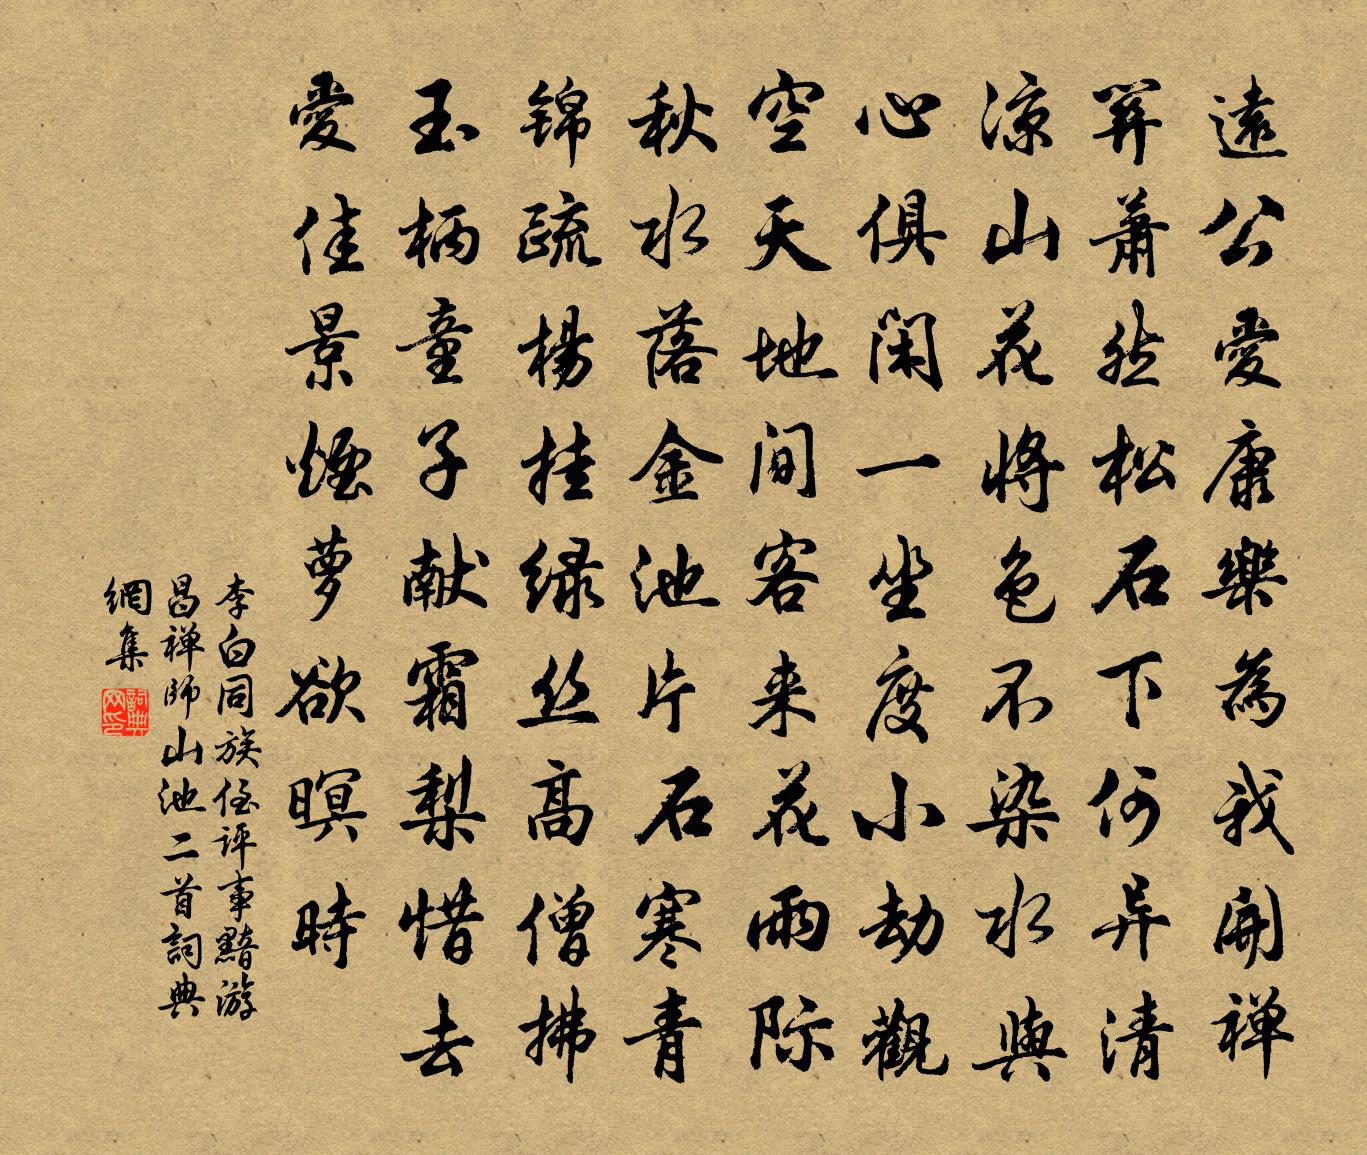 遠公愛康樂為我開禅
関蕭然松石下何异清
凉山花将色不染水與
心俱闲一坐度小劫觀
空天地间客来花雨际
秋水落金池片石寒青
锦疏楊挂绿丝高僧拂
玉柄童子献霜梨惜去
愛佳景煙萝欲暝時
李白同族侄评事黯游
昌禅師山池二首詞典
網集
詞典
网印